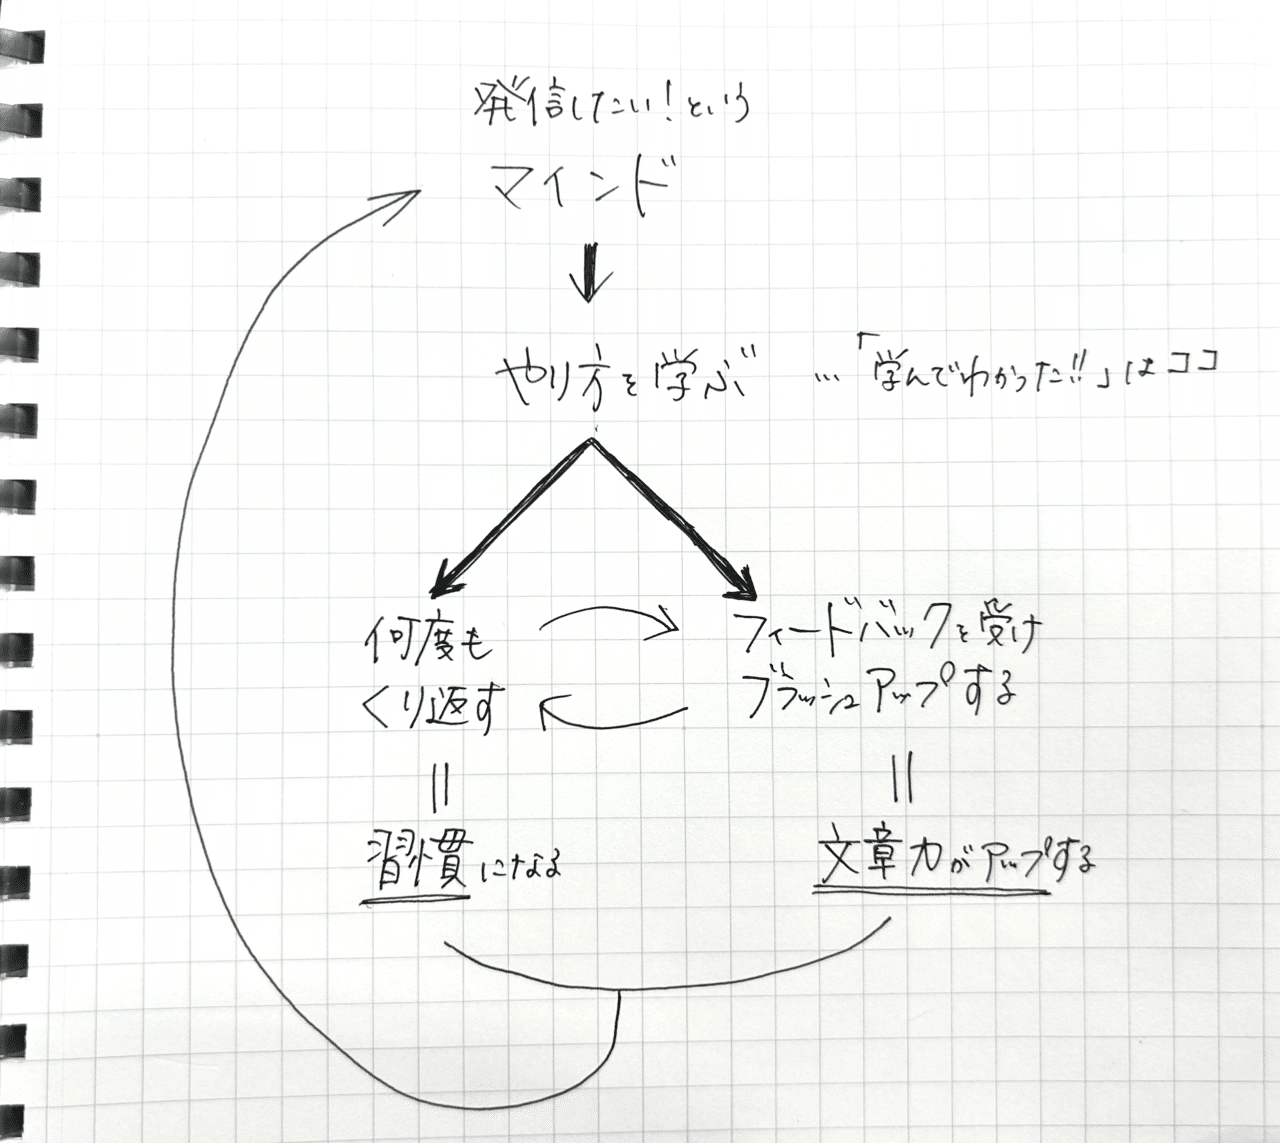 発信したい！という
マインド
やり方を学ぶ …「学んでわかった!!」はココ
何度も
くり返す
フィードバックを受け
ブラッシュアップする
習慣になる
文章力がアップする